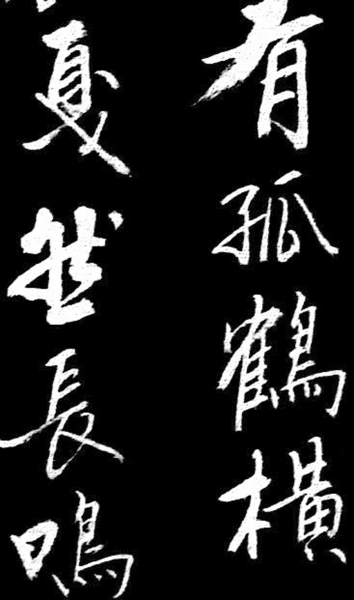 有孤鶴橫
戛然長鳴